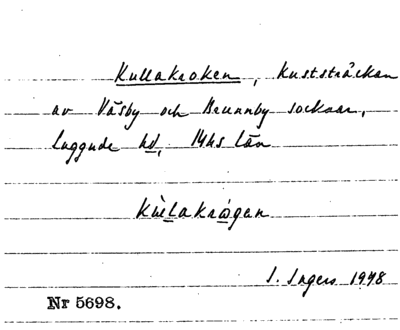 Kullakroken, kuststräckan
av Väsby och Brunnby socknar,
Luggude hd, Mhs län
Kullakrågen
I. Ingers 1948
Nr 5698.